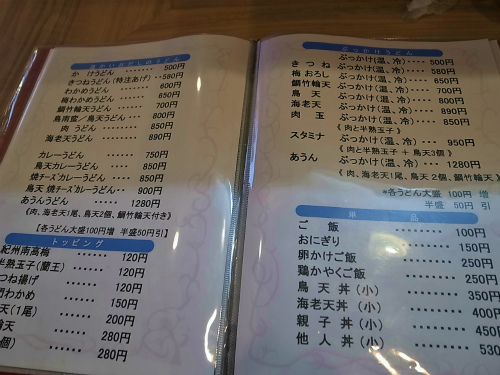 温かいおだしのうどん
かけうどん ・・・・・・ 500円
きつねうどん(特注あげ)・・580円
わかめうどん ・・・・・・ 600円
梅わかめうどん ・・・・ 650円
鯛竹輪天うどん ・・・・ 700円
鳥南蛮／鳥天うどん ・・・ 800円
肉うどん ・・・・・・・ 850円
海老天うどん ・・・・・ 890円
カレーうどん ・・・・・ 750円
鳥天カレーうどん ・・・・ 850円
焼チーズカレーうどん ・・・ 850円
鳥天 焼チーズカレーうどん ・・900円
あうんうどん ・・・・・ 1280円
《肉、海老天1尾、鳥天2個、鯛竹輪天付き》
【各うどん大盛100円増 半盛50円引】
トッピング
紀州南高梅 ・・・・・・ 120円
半熟玉子(蘭王) ・・・・・ 120円
つね揚げ ・・・・・・ 120円
わかめ ・・・・・・ 150円
天(1尾) ・・・・・・ 200円
輪天 ・・・・・・ 280円
個) ・・・・・・ 280円
ぶっかけうどん
ぶっかけ(温、冷)・・・ 500円
きつね ぶっかけ(温、冷)・・・ 580円
梅おろし ぶっかけ(温、冷)・・・ 650円
鯛竹輪天 ぶっかけ(温、冷)・・・ 700円
鳥天 ぶっかけ(温、冷)・・・ 800円
海老天 ぶっかけ(温、冷)・・・ 890円
肉玉 ぶっかけ(温、冷)・・・ 850円
《 肉と半熟玉子 》
スタミナ ぶっかけ(温、冷)・・・ 950円
《 肉と半熟玉子 ＋ 鳥天3個 》
あうん ぶっかけ(温、冷)・・・ 1280円
《 肉、海老天1尾、鳥天2個、鯛竹輪天
*各うどん大盛 100円 増
半盛 50円 引
単品
ご飯 ・・・・・・ 100円
おにぎり ・・・・・・ 150円
卵かけご飯 ・・・・・・ 250円
鶏かやくご飯 ・・・・・・ 250円
鳥天丼(小) ・・・・・・ 350円
海老天丼(小) ・・・・・・ 400円
親子丼(小) ・・・・・・ 450円
他人丼(小) ・・・・・・ 530